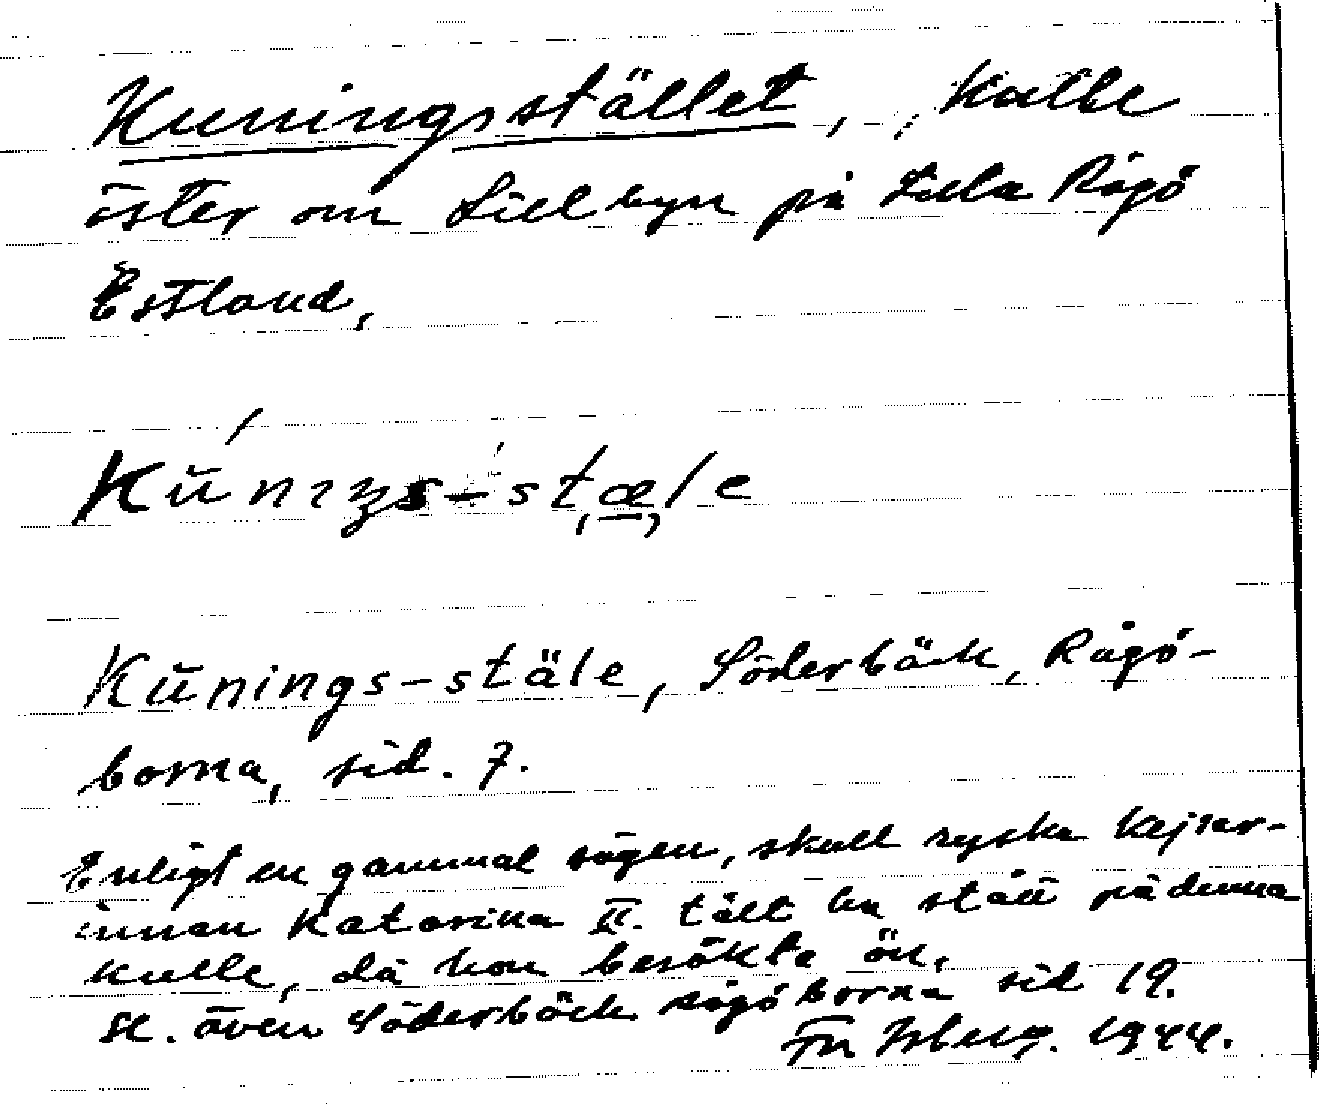 Kuningsstället, kulle
öster om Lillbyn på Lilla Rågö
Estland,
Kŭnıŋs-stæle
Kŭnings-stäle, Söderbäck, Rågö-
borna, sid. 7.
Enligt en gammal sägen, skull ryska kejsar-
innan Katarina II. tält ha stått på denna
kulle, då hon besökte ön.
se. även Söderbäck Rågöborna sid 19.
1944.